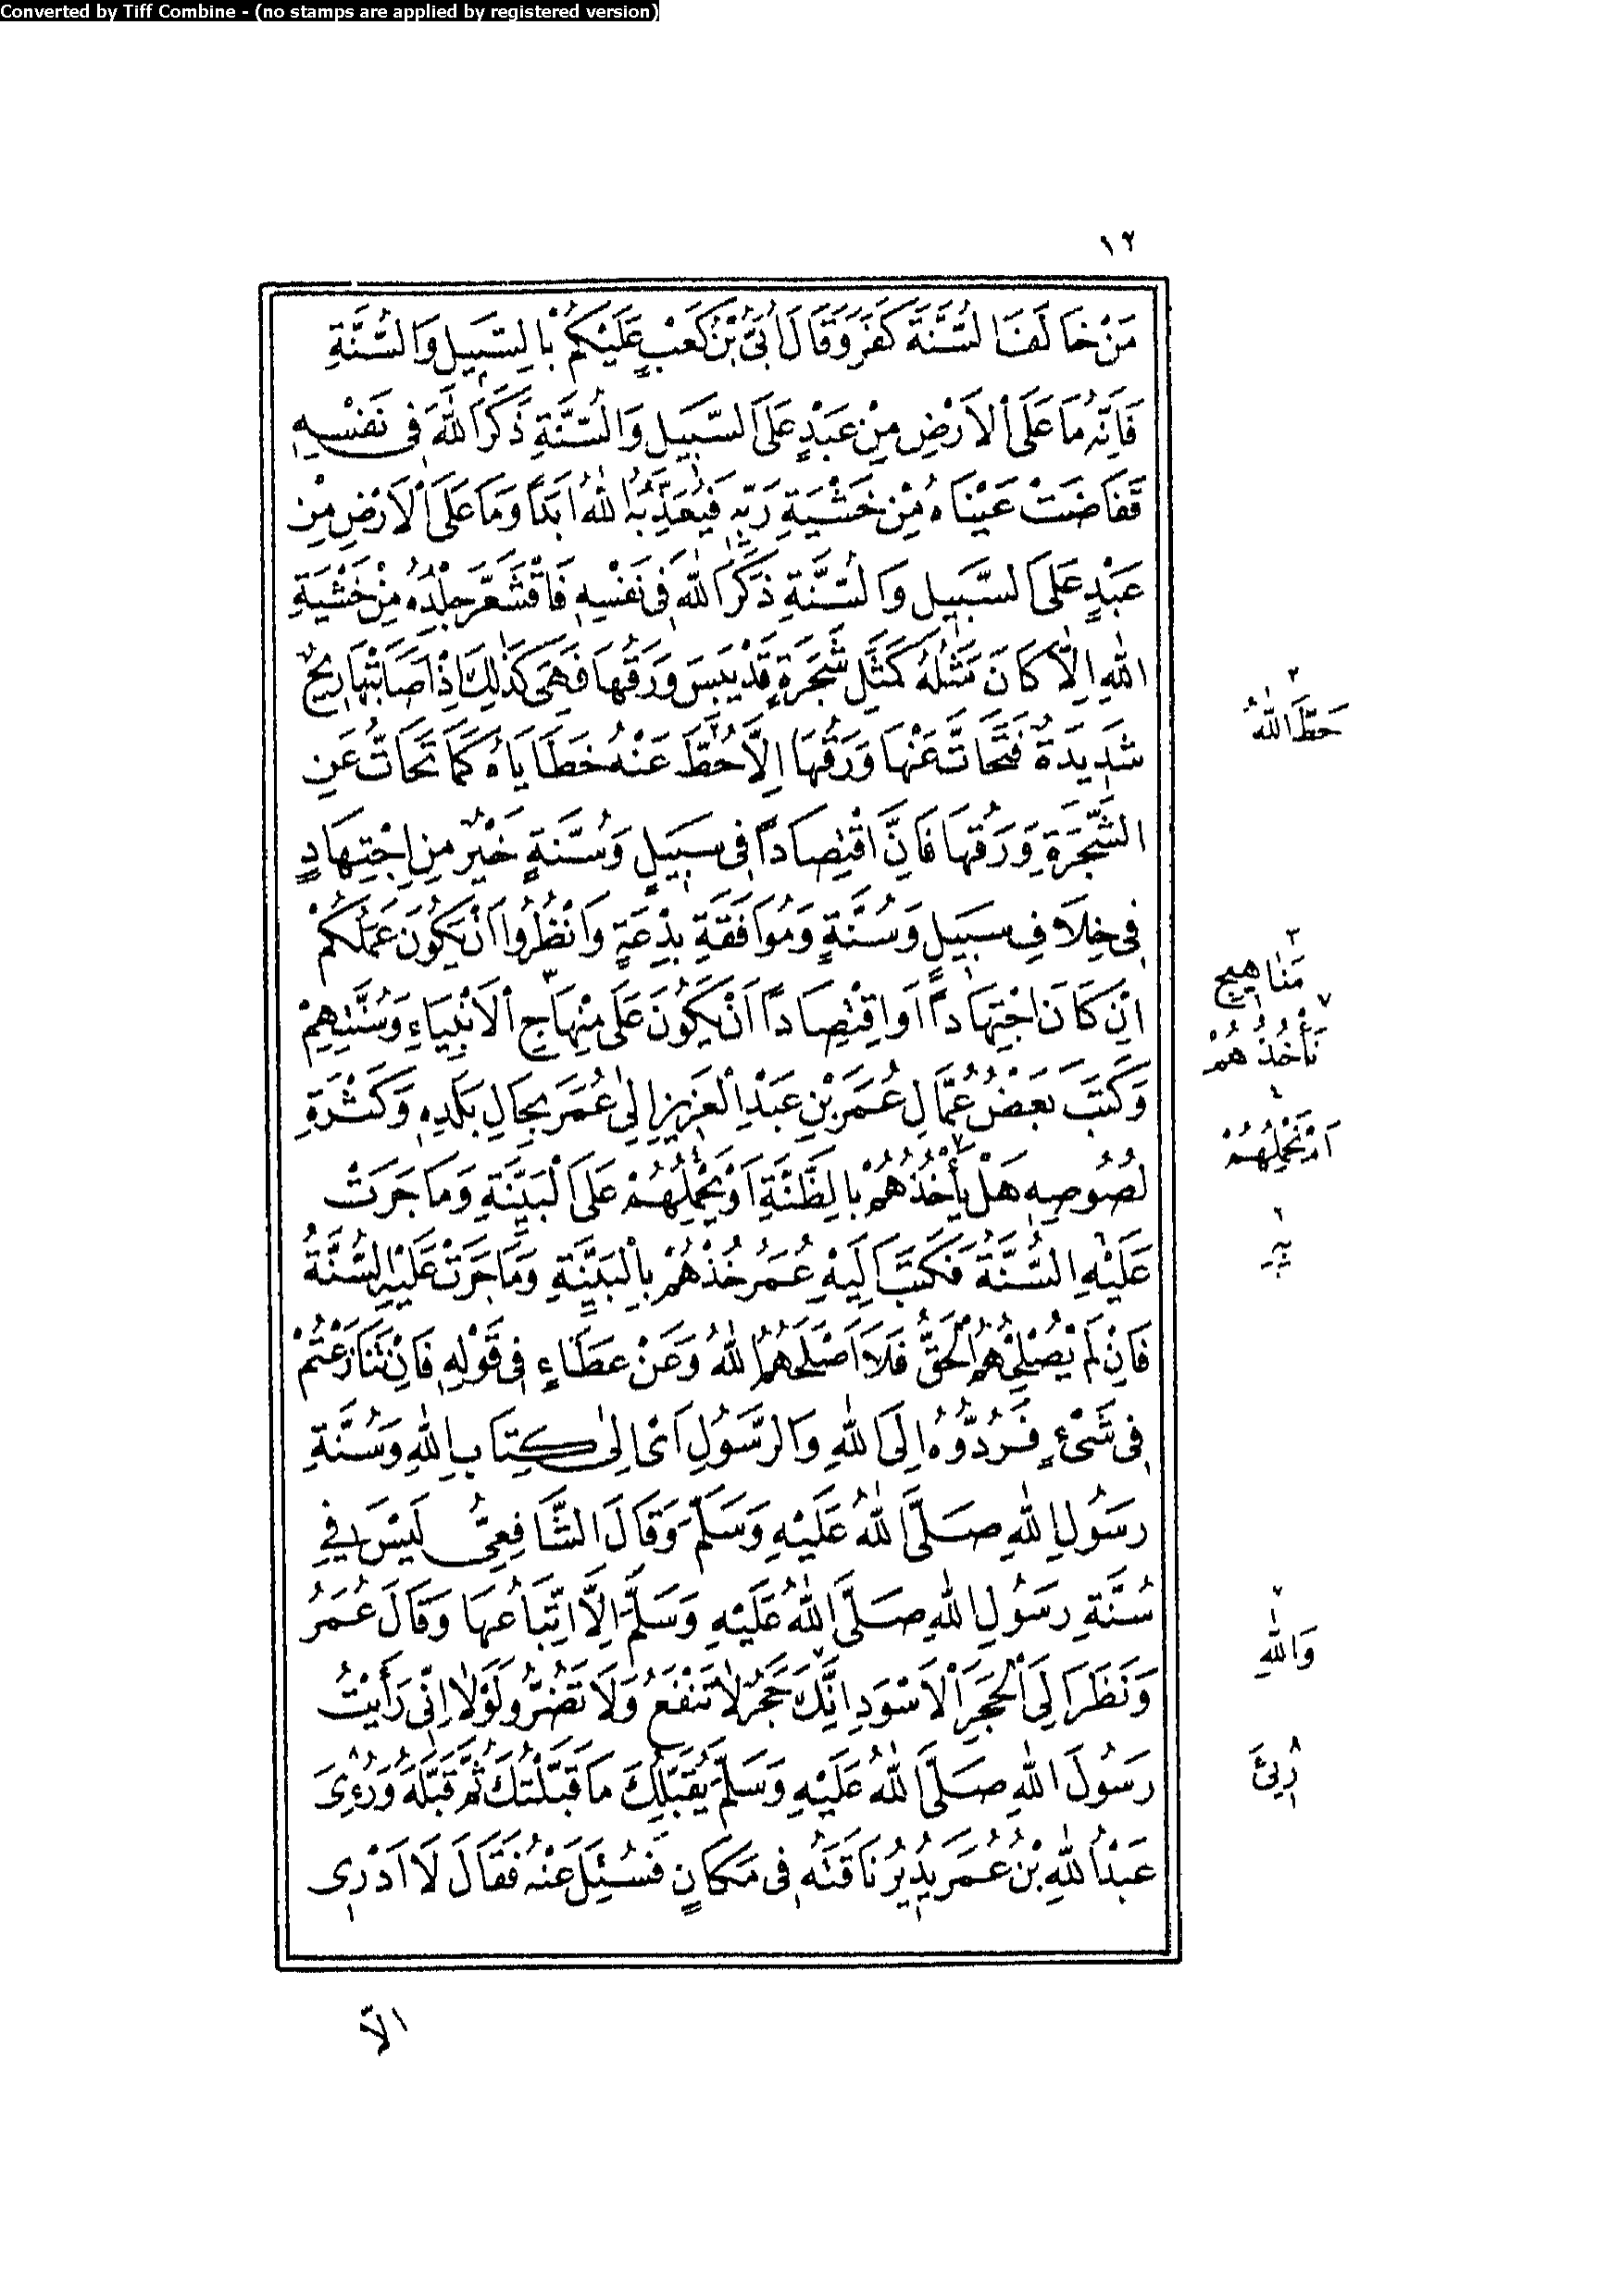 Converted by Tiff Combine - (no stamps are applied by registered version)
١٢
مَنْ خَالَفَ السُّنَّةَ كَفَرَ وَقَالَ اُبَىُّ بْنُ كَعْبٍ عَلَيْكُمْ بِالسَّبِيلِ وَالسُّنَّةِ
فَاِنَّهُ مَا عَلَى الْاَرْضِ مِنْ عَبْدٍ عَلَى السَّبِيلِ وَالسُّنَّةِ ذَكَرَ اللّٰهَ فِى نَفْسِهِ
فَفَاضَتْ عَيْنَاهُ مِنْ خَشْيَةِ رَبِّهِ فَيُعَذِّبُهُ اللّٰهُ اَبَدًا وَمَا عَلَى الْاَرْضِ مِنْ
عَبْدٍ عَلَى السَّبِيلِ وَالسُّنَّةِ ذَكَرَ اللّٰهَ فِى نَفْسِهِ فَاقْشَعَرَّ جِلْدُهُ مِنْ خَشْيَةِ
اللّٰهِ اِلَّا كَانَ مَثَلُهُ كَمَثَلِ شَجَرَةٍ قَدْ يَبِسَ وَرَقُهَا فَهِىَ كَذٰلِكَ اِذْ اَصَابَتْهَا رِيحٌ
شَدِيدَةٌ فَتَحَاتَّ عَنْهَا وَرَقُهَا اِلَّا حُطَّ عَنْهُ خَطَايَاهُ كَمَا تَحَاتُّ عَنِ
الشَّجَرَةِ وَرَقُهَا فَاِنَّ اقْتِصَادًا فِى سَبِيلٍ وَسُنَّةٍ خَيْرٌ مِنِ اجْتِهَادٍ
فِى خِلَافِ سَبِيلٍ وَسُنَّةٍ وَمُوَافَقَةِ بِدْعَةٍ وَانْظُرُوا اَنْ يَكُونَ عَمَلُكُمْ
اِنْ كَانَ اجْتِهَادًا اَوِ اقْتِصَادًا اَنْ يَكُونَ عَلَى مِنْهَاجِ الْاَنْبِيَاءِ وَسُنَّتِهِمْ
وَكَتَبَ بَعْضُ عُمَّالِ عُمَرَ بْنِ عَبْدِ الْعَزِيزِ اِلٰى عُمَرَ بِحَالِ بَلَدِهِ وَكَثْرَةِ
لُصُوصِهِ هَلْ يَأْخُذُهُمْ بِالظِّنَّةِ اَوْ يَحْمِلُهُمْ عَلَى الْبَيِّنَةِ وَمَا جَرَتْ
عَلَيْهِ السُّنَّةُ فَكَتَبَ اِلَيْهِ عُمَرُ خُذْهُمْ بِالْبَيِّنَةِ وَمَا جَرَتْ عَلَيْهِ السُّنَّةُ
فَاِنْ لَمْ يُصْلِحْهُمُ الْحَقُّ فَلَا اَصْلَحَهُمُ اللّٰهُ وَعَنْ عَطَاءٍ فِى قَوْلِهِ فَاِنْ تَنَازَعْتُمْ
فِى شَىْءٍ فَرُدُّوهُ اِلَى اللّٰهِ وَالرَّسُولِ اَىْ اِلٰى كِتَابِ اللّٰهِ وَسُنَّةِ
رَسُولِ اللّٰهِ صَلَّى اللّٰهُ عَلَيْهِ وَسَلَّمَ وَقَالَ الشَّافِعِىُّ لَيْسَ فِى
سُنَّةِ رَسُولِ اللّٰهِ صَلَّى اللّٰهُ عَلَيْهِ وَسَلَّمَ اِلَّا اتِّبَاعُهَا وَقَالَ عُمَرُ
وَنَظَرَ اِلَى الْحَجَرِ الْاَسْوَدِ اِنَّكَ حَجَرٌ لَا تَنْفَعُ وَلَا تَضُرُّ وَلَوْلَا اِنِّى رَأَيْتُ
رَسُولَ اللّٰهِ صَلَّى اللّٰهُ عَلَيْهِ وَسَلَّمَ يُقَبِّلُكَ مَا قَبَّلْتُكَ ثُمَّ قَبَّلَهُ وَرُؤِىَ
عَبْدُ اللّٰهِ بْنُ عُمَرَ يُدِيرُ نَاقَتَهُ فِى مَكَانٍ فَسُئِلَ عَنْهُ فَقَالَ لَا اَدْرِى
٢
حَطَّ اللّٰهُ
٣
مَنَاهِيجِ
٧
نَأْخُذُهُمْ
٤
اَمْ نَحْمِلُهُمْ
٦
٧
وَاللّٰهِ
٨
رِئَ
اِلَّا